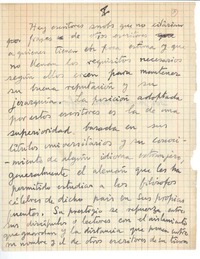 I
Hay escritores snobs que no
de otros escritores
a quienes tienen en poca estima y que
no llenan los requisitos necesarios
según ellos creen para mantener
su buena reputación y su
jerarquía. La posición adoptada
por estos escritores es la de una
superioridad basada en sus
títulos universitarios y su conoci-
-miento de algún idioma extranjero,
generalmente el alemán que les ha
permitido estudiar a los filósofos
célebres de dicho país en sus propias
fuentes. Su prestigio se refuerza entre
sus discípulos o lectores con el aislamiento
que guardan y la distancia que ponen entre
su nombre y el de otros escritores de su tierra